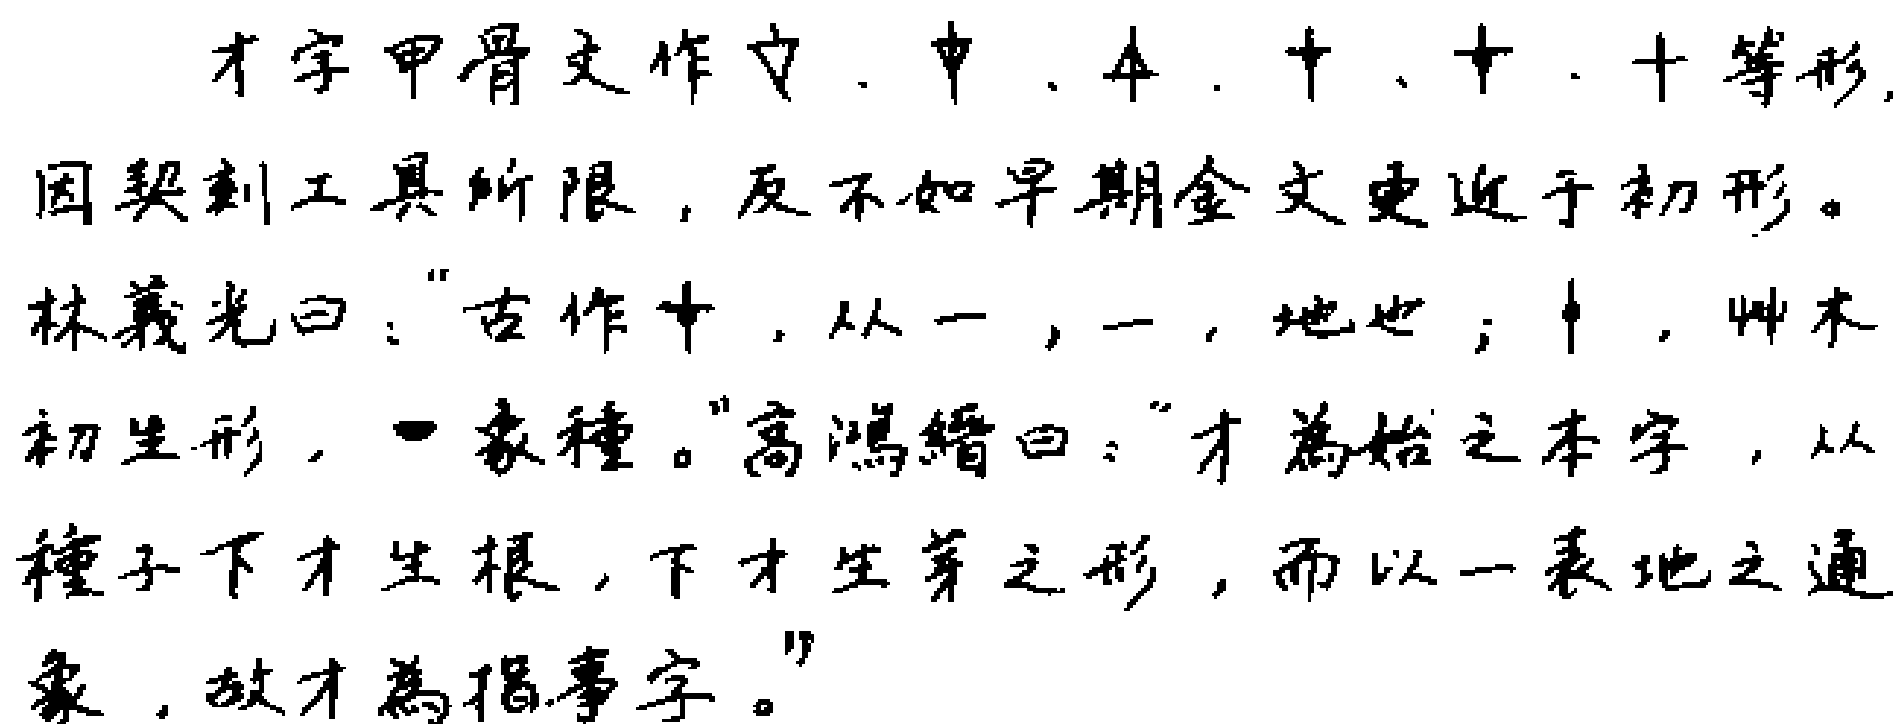 才字甲骨文作、、、、、十等形，
因契刻工具所限，反不如早期金文更近于初形。
林義光曰：“古作，从一，一，地也；，艸木
初生形，象種。”高鴻縉曰：“才為始之本字，从
種子下才生根，下才生芽之形，而以一表地之通
象，故才為指事字。”